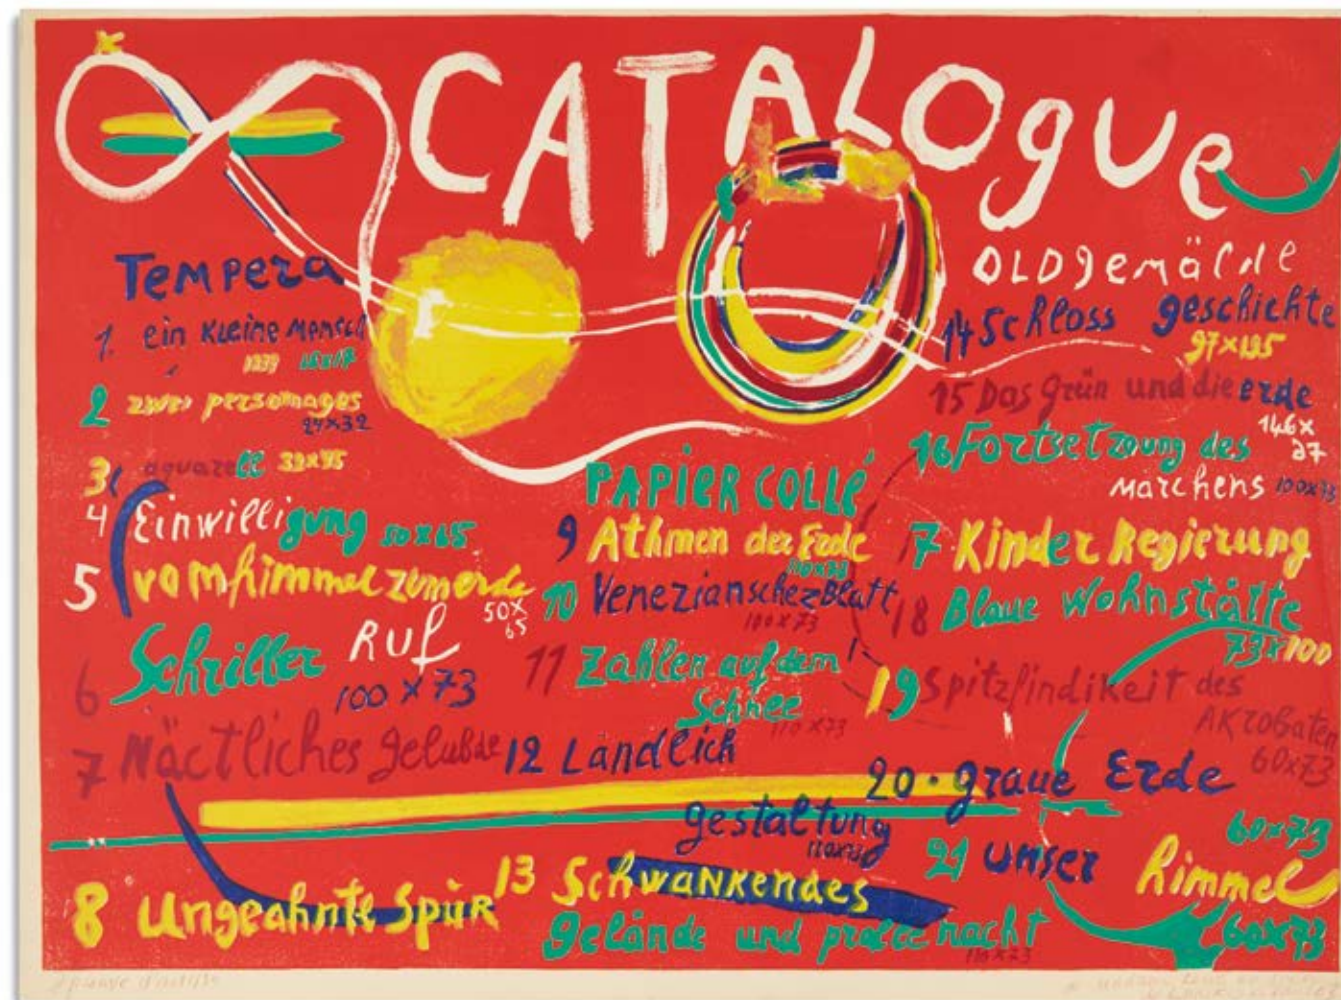 CATALOGUE
Tempera
1. ein Kleine Mensch
2 zwei personages
24x32
3 aquarell 32x45
4 Einwilligung 50x65
5 vom himmel zum erde
50x
65
6 Schriller Ruf
100 x 73
7 Näctliches gelubde
8 Ungeahnte Spur
PAPIER COLLÉ
9 Athmen der Erde
110x73
10 VenezianschezBlatt
110x73
11 Zahlen auf dem
Schnee
110x73
12 Ländlich
gestaltung
110x73
13 Schwankendes
gelände und nacht
110x73
14 Schloss geschichte
97x195
15 Das Grün und die erde
146x
97
16 Fortsetzung des
Märchens 100x73
17 Kinder Regierung
18 Blaue Wohnstätte
73x100
19 Spitzfindikeit des
AKrobaten
60x73
20. graue Erde
60x73
21 unser himmel
60x73